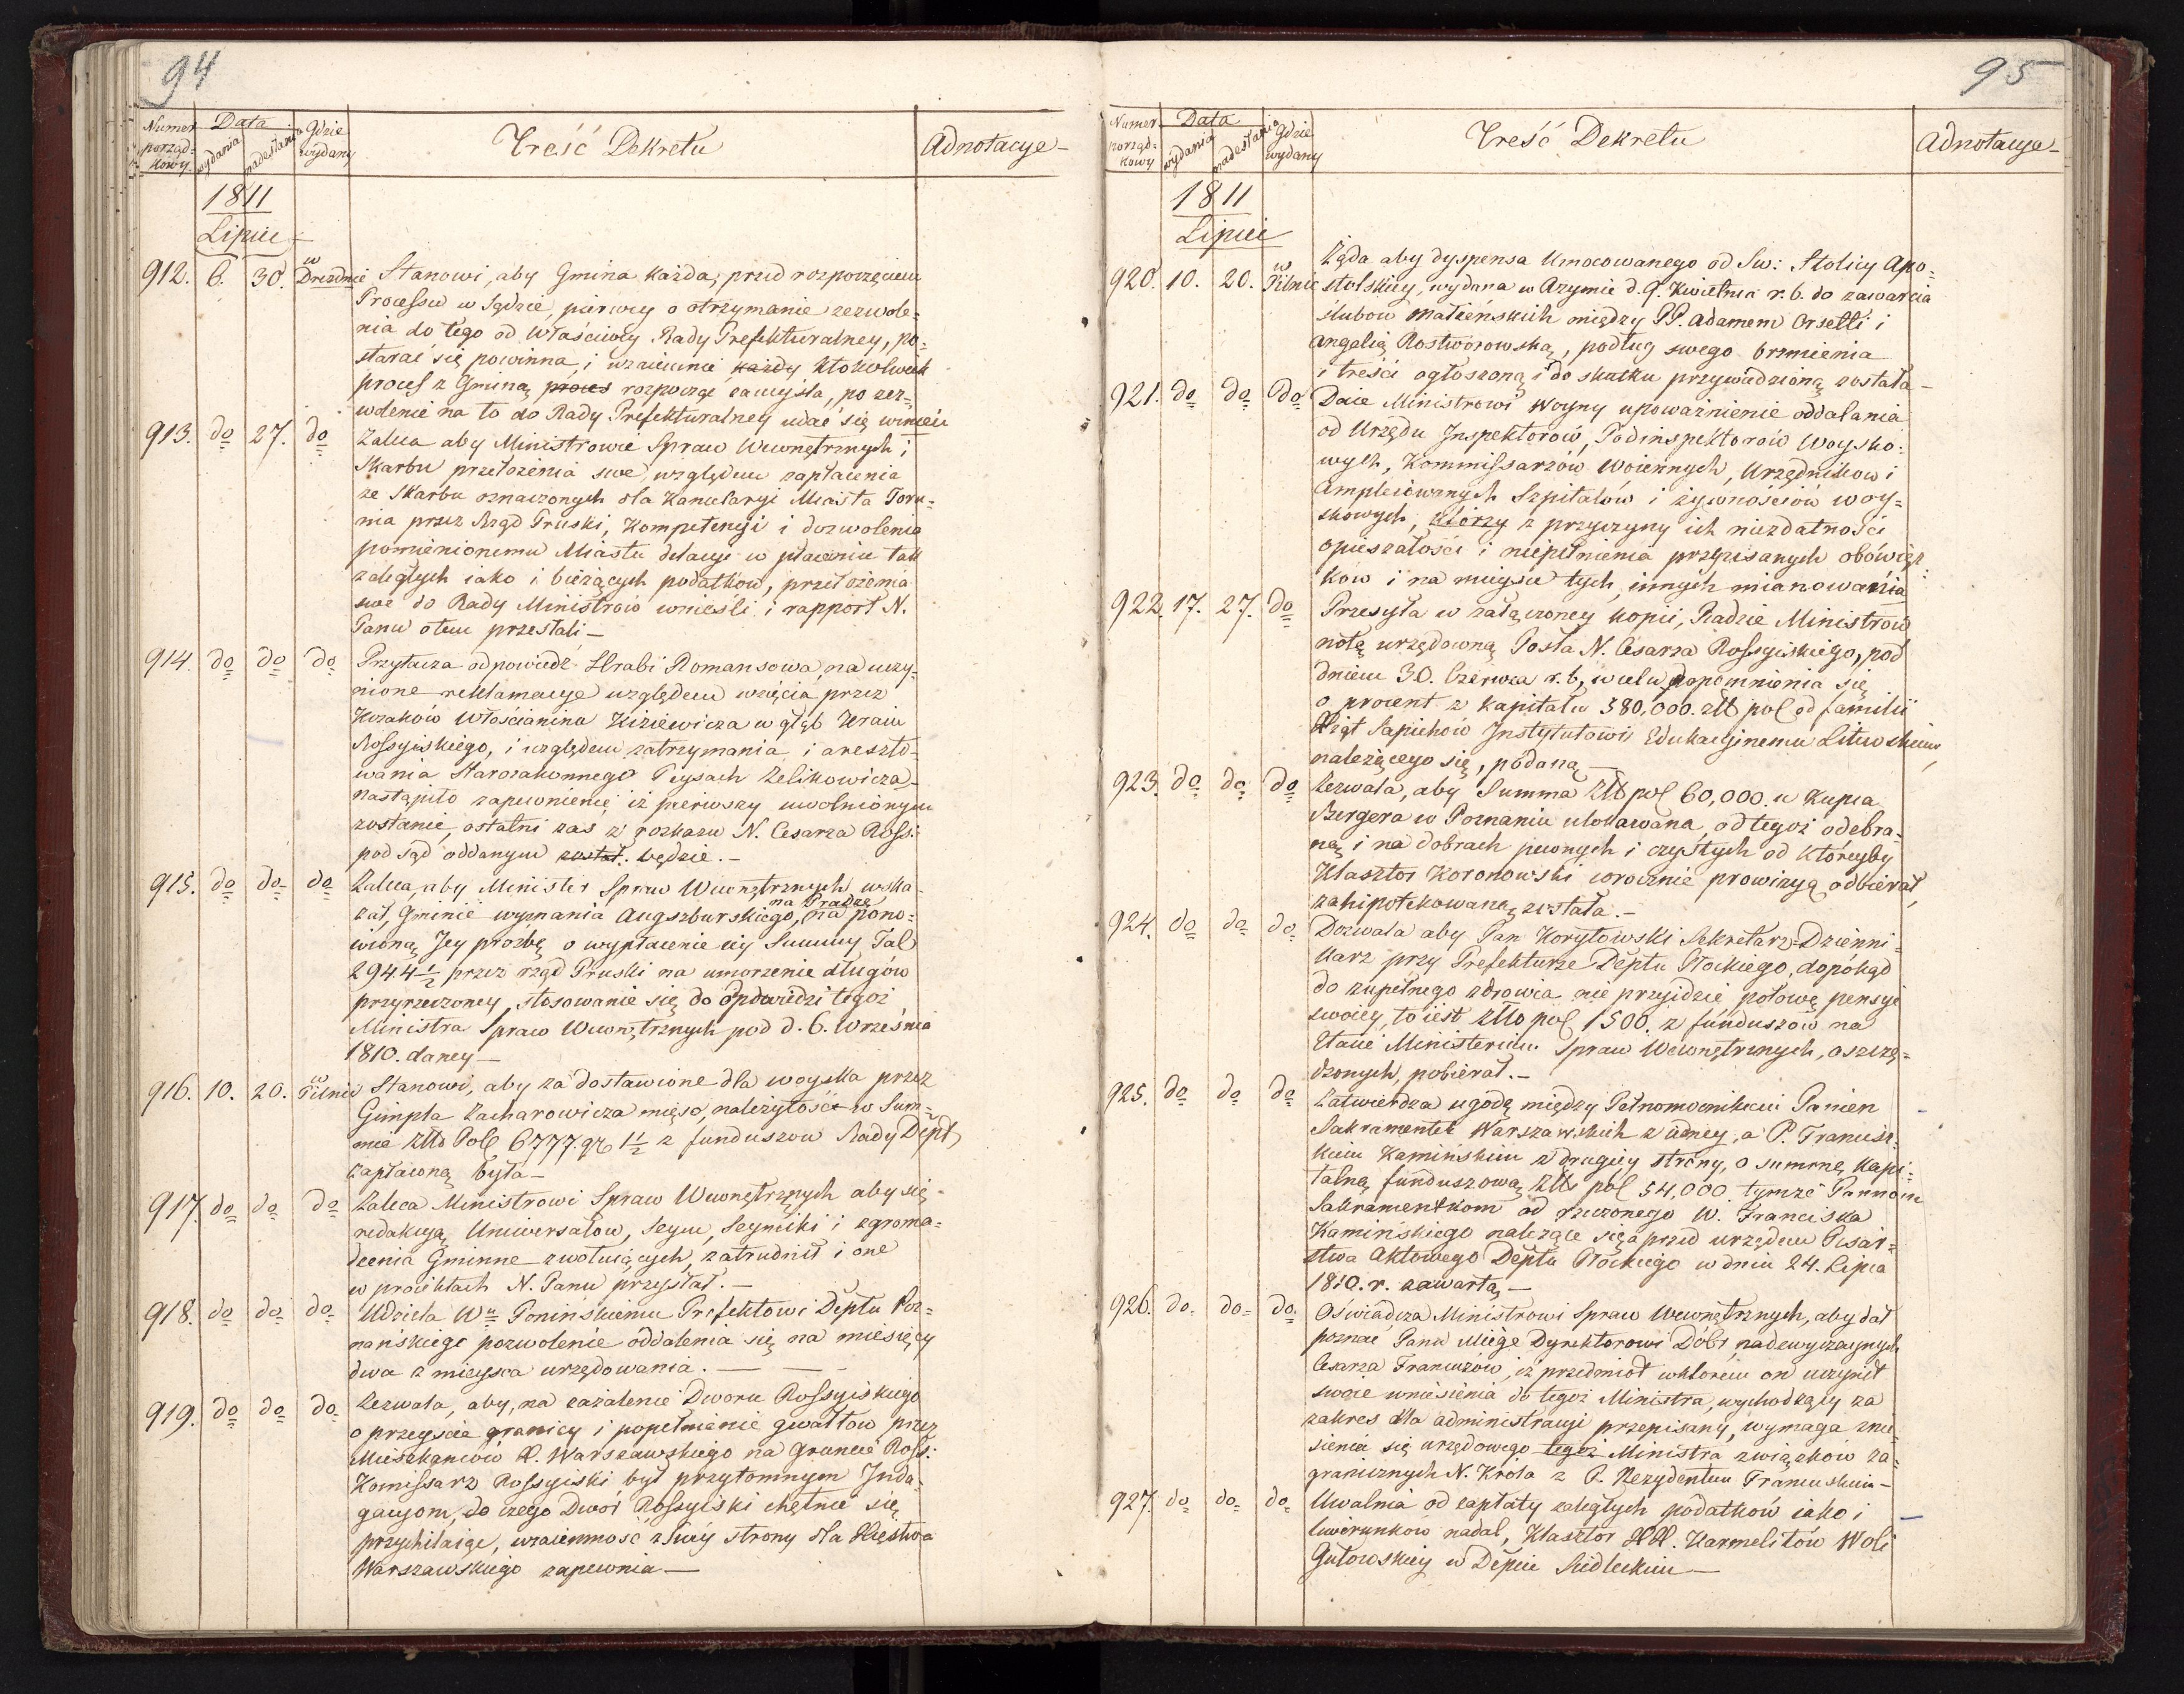 94
Numer porząd-kowy
Data
wydania
nadesłania
Gdzie wydany
Treść Dekretu
Adnotacye
1811
Lipiec
912. 6. 30. w Dreźdnie Stanowi, aby Gmina każda, przed rozpoczęciem
Processu w Sądzie, pierwey o otrzymanie zezwole=
nia do tego od Właściwey Rady Prefekturalney, po=
starać się powinna, i wzaiemnie każdy ktokolwiek
proces z Gminą proces rozpocząć zamyśla, po zez=
wolenie na to do Rady Prefekturalney udać się winien
913. do 27. do Zaleca aby Ministrowie Spraw Wewnętrznych i
Skarbu przełożenia swe względem zapłacenia
ze Skarbu oznaczonych dla Kancelaryi Miasta Toru=
nia przez Rząd Pruski, Kompetencyi i dozwolenia
pomienionemu Miastu delacyi w płaceniu tak
zaległych iako i bieżących podatków, przełożenia
swe do Rady Ministrów wnieśli i rapport N.
Panu otem przesłali —
914. do do do Przytacza odpowiedź Hrabi Romansowa, na uczy-
nione reklamacye względem wzięcia przez
Kozaków Włościanina Kiziewicza w głąb Kraiu
Rossyiskiego, i względem zatrzymania i areszto-
wania Starozakonnego Peysach Zelikowicza,
nastąpiło zapewnienie iż pierwszy uwolnionym
zostanie, ostatni zaś z rozkazu N. Cesarza Ross:
pod sąd oddanym został. będzie. —
915. do do do Zaleca, aby Minister Spraw Wewnętrznych wska-
zał, Gminie wyznania Augszburskiego, na Pradze na pono=
wioną Jey prośbę o wypłacenie iey Summy Tal
2944 1/2 przez rząd Pruski na umorzenie długów
przyrzeczoney, stosowanie się do opdowiedzi tegoż
Ministra Spraw Wewnętrznych pod d. 6. Września
1810. daney —
916. 10. 20. w Pilnic Stanowi, aby za dostawione dla woyska przez
Gimpla Zacharowicza mięso, należytość w Sum=
mie Złto Pol 6777. gr 1 1/2 z funduszow Rady Dept
zapłaconą była —
917. do do do Zaleca Ministrowi Spraw Wewnętrznych aby się
redakcyą Uniwersałow, Seym, Seymiki i zgroma=
dzenia Gminne zwołuiących, zatrudnił i one
w proiektach N. Panu przesłał. —
918. do do do Udziela Wu Poninskiemu Prefektowi Deptu Poz=
nańskiego pozwolenie oddalenia się na miesięcy
dwa z mieysca urzędowania. —
919. do do do Zezwala, aby, na zażalenie Dworu Rossyiskiego
o przeyście granicy i popełnienie gwałtow przez
Mieszkańców X. Warszawskiego na gruncie Ross:
Komissarz Rossyiski był przytomnym Inda-
gacyom, do czego Dwór Rossyiski chętnie się
przychilaiąc, wzaiemność z swey strony dla Xięstwa
Warszawskiego zapewnia —
95
Numer porząd-kowy
Data
wydania
nadesłania
Gdzie wydany
Treść Dekretu
Adnotacye
1811
Lipiec
Żąda aby dyspensa Umocowanego od Sw: Stolicy Apo=
920. 10. 20. w Pilnic stolskiey, wydana w Rzymie d. 9. Kwietnia r. b. do zawarcia
ślubow małżeńskich między PP. Adamem Orsetti i
Angelią Rostworowską, podług swego brzmienia
i treści ogłoszoną i do skutku przywiedzioną została —
921. do do do Daie Ministrowi Woyny upoważnienie oddalania
od Urzędu Inspektorów, Podinspektorów Woysko=
wych, Kommissarzów Woiennych, Urzędnikow i
Ampleiowanych Szpitalów i żywnościów woy-
skowych, którzy z przyczyny ich niezdatności
opieszałości i niepełnienia przepisanych obowiąz=
ków i na mieysce tych, innych mianowania
922. 17. 27. do Przesyła w załączoney kopii, Radzie Ministrów
notę urzędowną Posła N. Cesarza Rossyiskiego, pod
dniem 30. Czerwca r. b, w celu dopomnienia się
o procent z kapitału 580,000. złt pol od familii
Xiąt Sapiehów Instytutowi Edukacyinemu Litewskiemu
należącego się, podaną —
923. do do do Zezwala, aby Summa Złt pol 60,000. u Kupca
Bergera w Poznaniu ulokowana, od tegoż odebra-
ną i na dobrach pewnych i czystych od któreyby
Klasztor Koronowski corocznie prowizyą odbierał,
zahipotekowaną została. —
924. do do do Dozwala aby Pan Korytowski Sekretarz-Dzienni=
karz przy Prefekturze Deptu Płockiego, dopókąd
do zupełnego zdrowia nie przyidzie, połowę pensyi
swoiey, to iest złto pol 1500. z funduszów na
Etacie Ministerium Spraw Wewnętrznych, oszczę=
dzonych, pobierał. —
925. do do do Zatwierdza ugodę między Pełnomocnikiem Panien
Sakramentek Warszawskich z iedney, a P. Francisz=
kiem Kamińskim z drugiey strony, o summę kapi=
talną funduszową Złto pol 54,000. tymże Pannom
Sakramentkom od rzeczonego W. Franciszka
Kamińskiego należące się a przed urzędem Pisar=
stwa Aktowego Deptu Płockiego w dniu 24. Lipca
1810. r. zawartą. —
926. do do do Oświadcza Ministrowi Spraw Wewnętrznych, aby dał
poznać Panu Miége Dyrektorowi Dóbr nadewyczaynych
Cesarza Francuzów, iż przedmiot w którem on uczynił
swoie wniesienia do tegoż Ministra, wychodzący za
zakres dla administracyi przepisany, wymaga znie-
sienia się urzędowego tegoż Ministra związków za=
granicznych N. Króla z P. Rezydentem Francuskim —
927. do do do Uwalnia od zapłaty zaległych podatków iako i
liwerunkow nadal, Klasztor XX. Karmelitów Woli
Gutowskiey w Depcie Siedleckim —